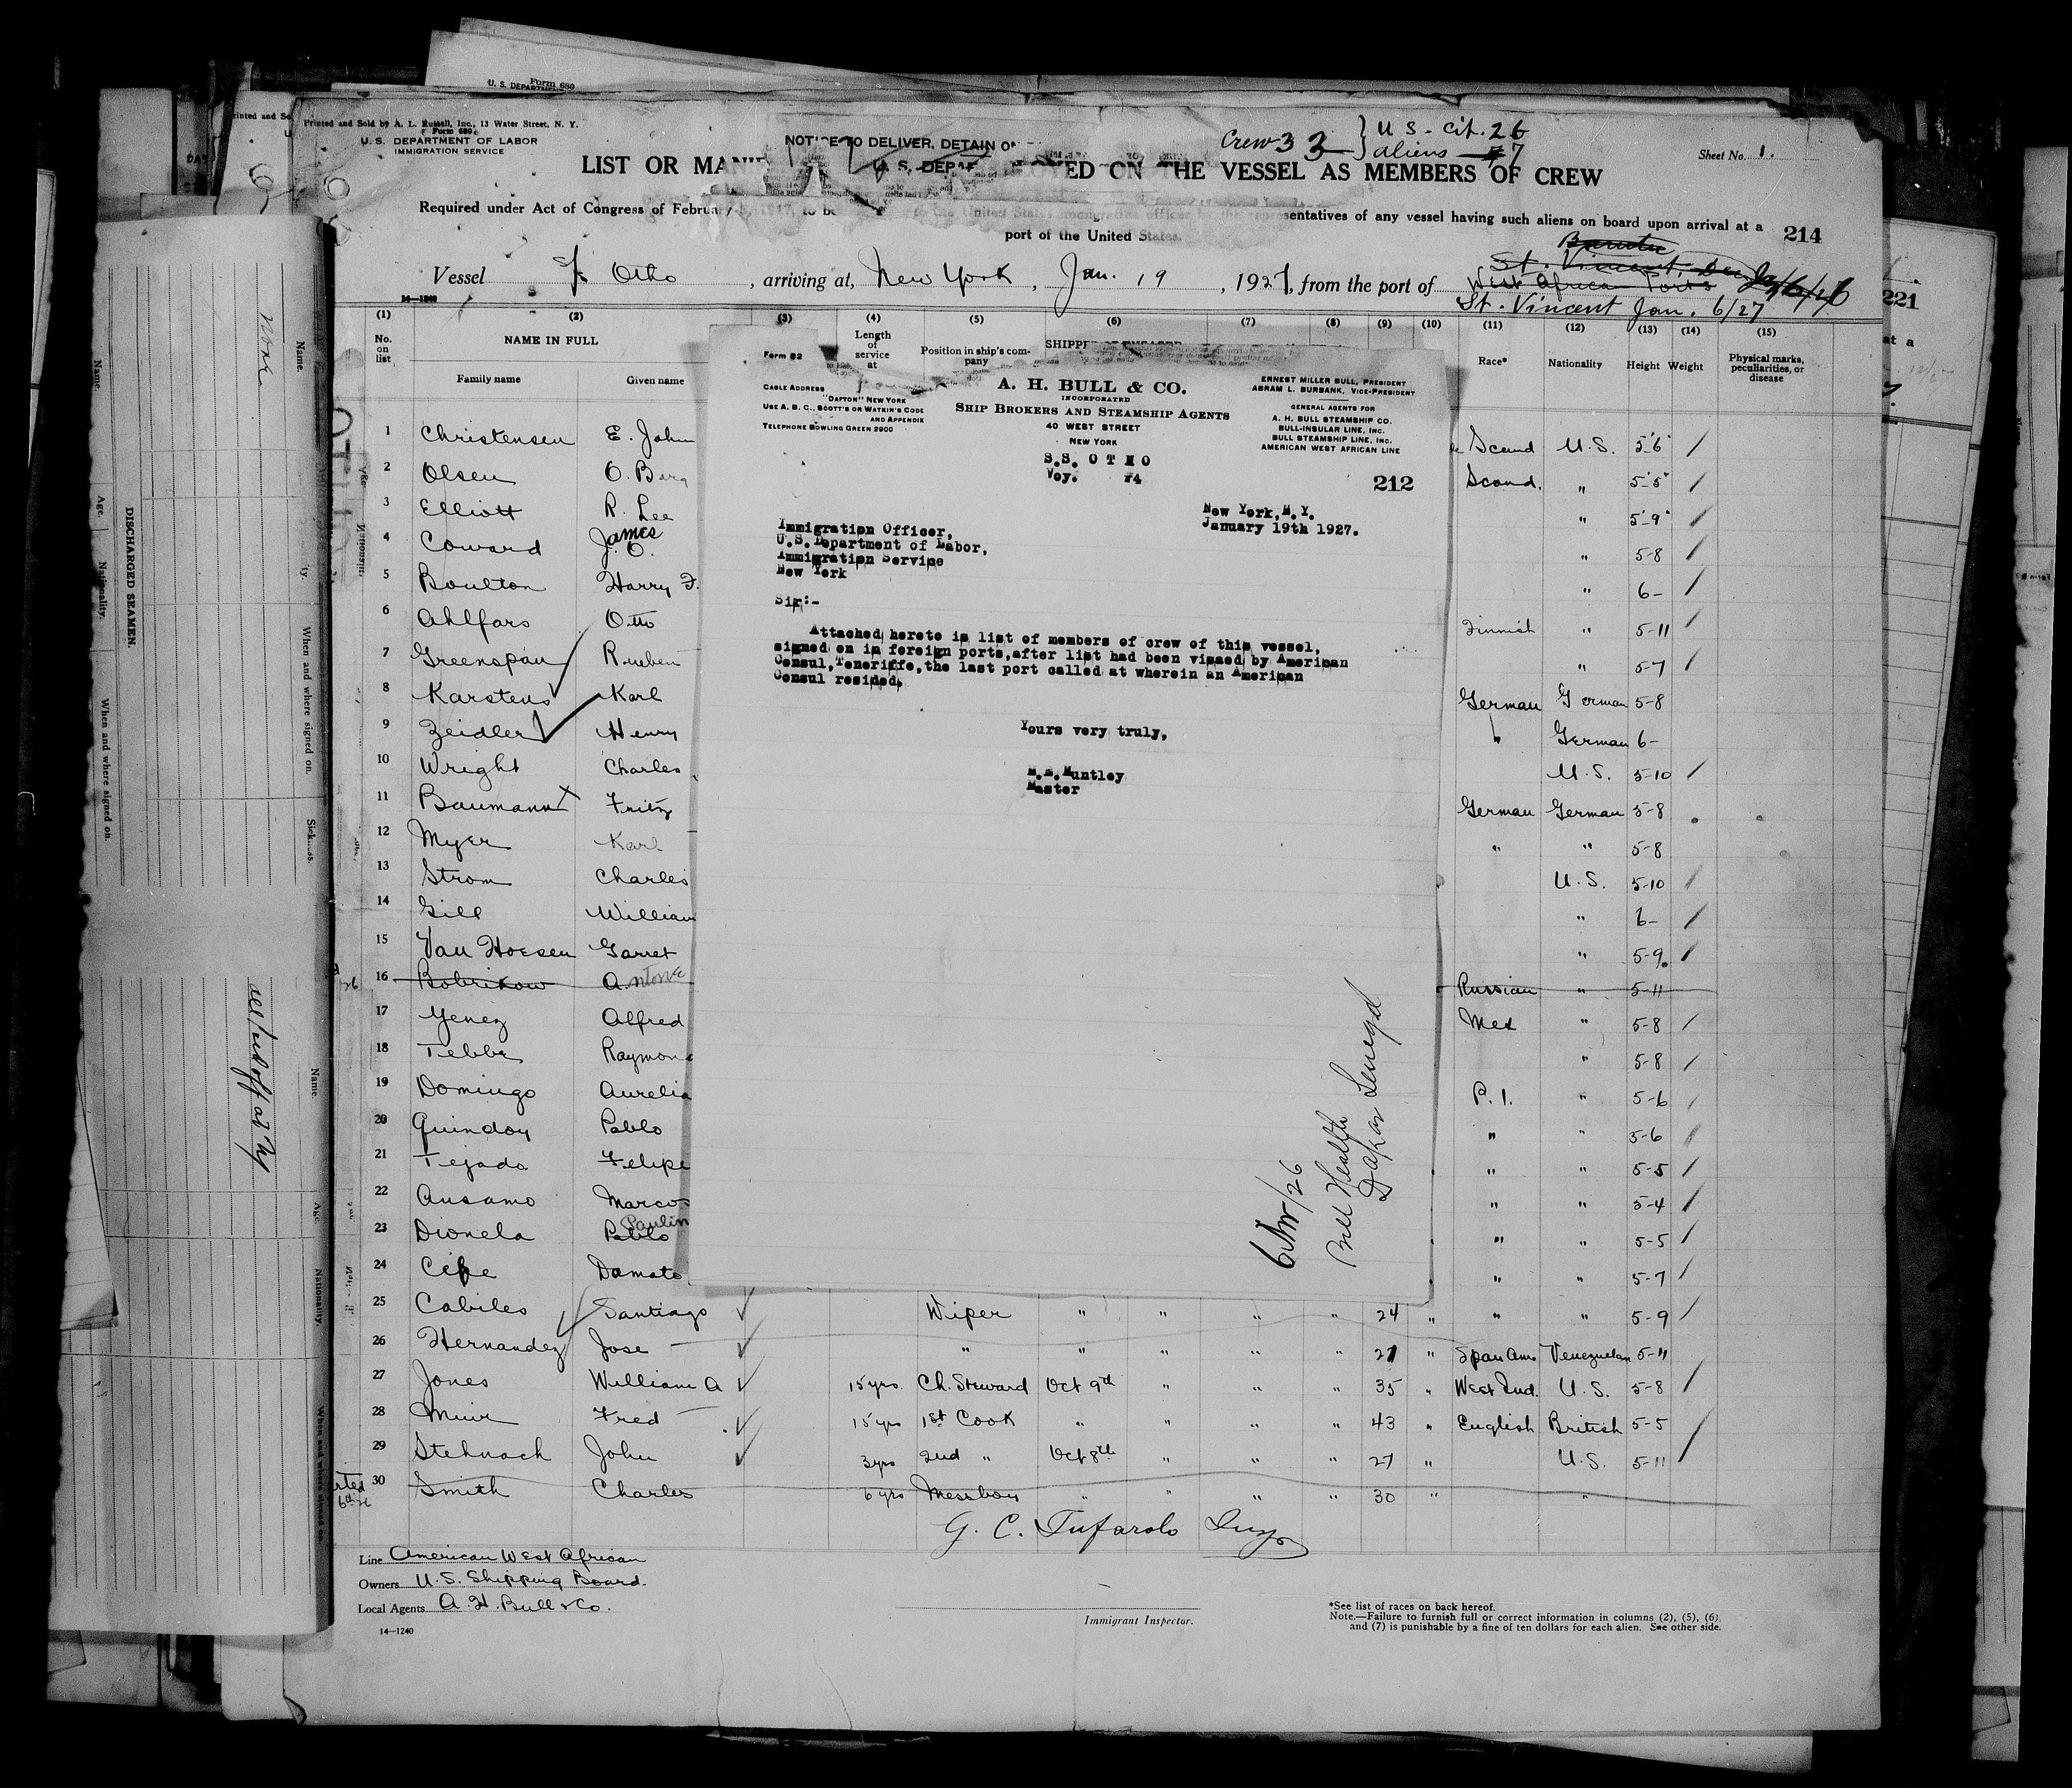 Form 680
U. S. DEPARTMENT
Printed and Sold by A. L. Russell, Inc., 13 Water Street, N. Y.
Form 680
U. S. DEPARTMENT OF LABOR
IMMIGRATION SERVICE
NOTICE TO DELIVER, DETAIN O
U. S. DEPA
Crew 33 } U S - Cit. 26
aliens 7
Sheet No. 1.
LIST OR MANI OYED ON THE VESSEL AS MEMBERS OF CREW
Required under Act of Congress of February 5, 1917, to be to the United States immigration officer by the representatives of any vessel having such aliens on board upon arrival at a
port of the United States.
214
Vessel Otho, arriving at, New York, Jan. 19, 1927, from the port of West African Ports
St. Vincent, Dec
St. Vincent Jan. 6/27
221
at a
14—1240
(1) (2) (3) (4) (5) (6) (7) (8) (9) (10) (11) (12) (13) (14) (15)
No. on list
NAME IN FULL
Family name Given name
Length of service at
Position in ship's company
Race* Nationality Height Weight
Physical marks, peculiarities, or disease
1 Christensen E. John Scand U.S. 5'6"
2 Olsen O. Berg Scand. " 5'5"
3 Elliott R. Lee " 5'9"
4 Coward James O. " 5-8
5 Boulton Harry F. " 6-
6 Ahlfors Otto Finnish " 5-11
7 Greenspan Rueben " 5-7
8 Karstens Karl German German 5-8
9 Zeidler Henry " German 6-
10 Wright Charles U.S. 5-10
11 Baumann Fritz German German 5-8
12 Myer Karl " " 5-8
13 Strom Charles U.S. 5-10
14 Gill William " 6-
15 Van Hoesen Garret " 5-9
16 Bobrikow Antone Russian " 5-11
17 Yenez Alfred Mex " 5-8
18 Tebbe Raymon " 5-8
19 Domingo Aurelia P.I. " 5-6
20 Quindoy Pablo " " 5-6
21 Tejada Felipe " " 5-5
22 Ausamo Marcos " " 5-4
23 Dionela Pablo Paulin " " 5-5
24 Cepe Damato " " 5-7
25 Cabiles Santiago Wiper " " " " 24 " " " 5-9
26 Hernandez Jose " " " " " 27 " Span Am. Venezuelan 5-11
27 Jones William A 15 yrs. Ch. Steward Oct 9th " " " 35 " West Ind. U.S. 5-8
28 Muir Fred 15 yrs 1st Cook " " " " 43 " English British 5-5
29 Stehnach John 3 yrs 2nd " Oct 8th " " " 27 " U.S. 5-11
30 Smith Charles 6 yrs Messboy " " " " 30 " "
G. C. Tufarolo Insp
Line American West African
Owners U.S. Shipping Board.
Local Agents A. H. Bull & Co.
14—1240
Immigrant Inspector.
*See list of races on back hereof.
Note.—Failure to furnish full or correct information in columns (2), (5), (6),
and (7) is punishable by a fine of ten dollars for each alien. See other side.
Form 82
CABLE ADDRESS
"DAFTON" NEW YORK
USE A. B. C., SCOTT'S OR WATKIN'S CODE
AND APPENDIX
TELEPHONE BOWLING GREEN 2900
A. H. BULL & CO.
INCORPORATED
SHIP BROKERS AND STEAMSHIP AGENTS
40 WEST STREET
NEW YORK
ERNEST MILLER BULL, PRESIDENT
ABRAM L. BURBANK, VICE-PRESIDENT
GENERAL AGENTS FOR
A. H. BULL STEAMSHIP CO.
BULL-INSULAR LINE, INC.
BULL STEAMSHIP LINE, INC.
AMERICAN WEST AFRICAN LINE
S.S. O T H O
Voy. #4
212
New York, N.Y.
January 19th 1927.
Immigration Officer,
U.S. Department of Labor,
Immigration Service
New York
Sir:-
Attached hereto is list of members of crew of this vessel,
signed on in foreign ports,after list had been vissed by American
Consul,Teneriffe,the last port called at wherein an American
Consul resided.
Yours very truly,
M.E.Huntley
Master
Bill Health
Dakar Senegal
DISCHARGED SEAMEN.
Name. Age. Nationality. When and where signed on.
Name.
When and where signed on.
Sickness.
Name.
Age.
Nationality.
When and where signed on.
None